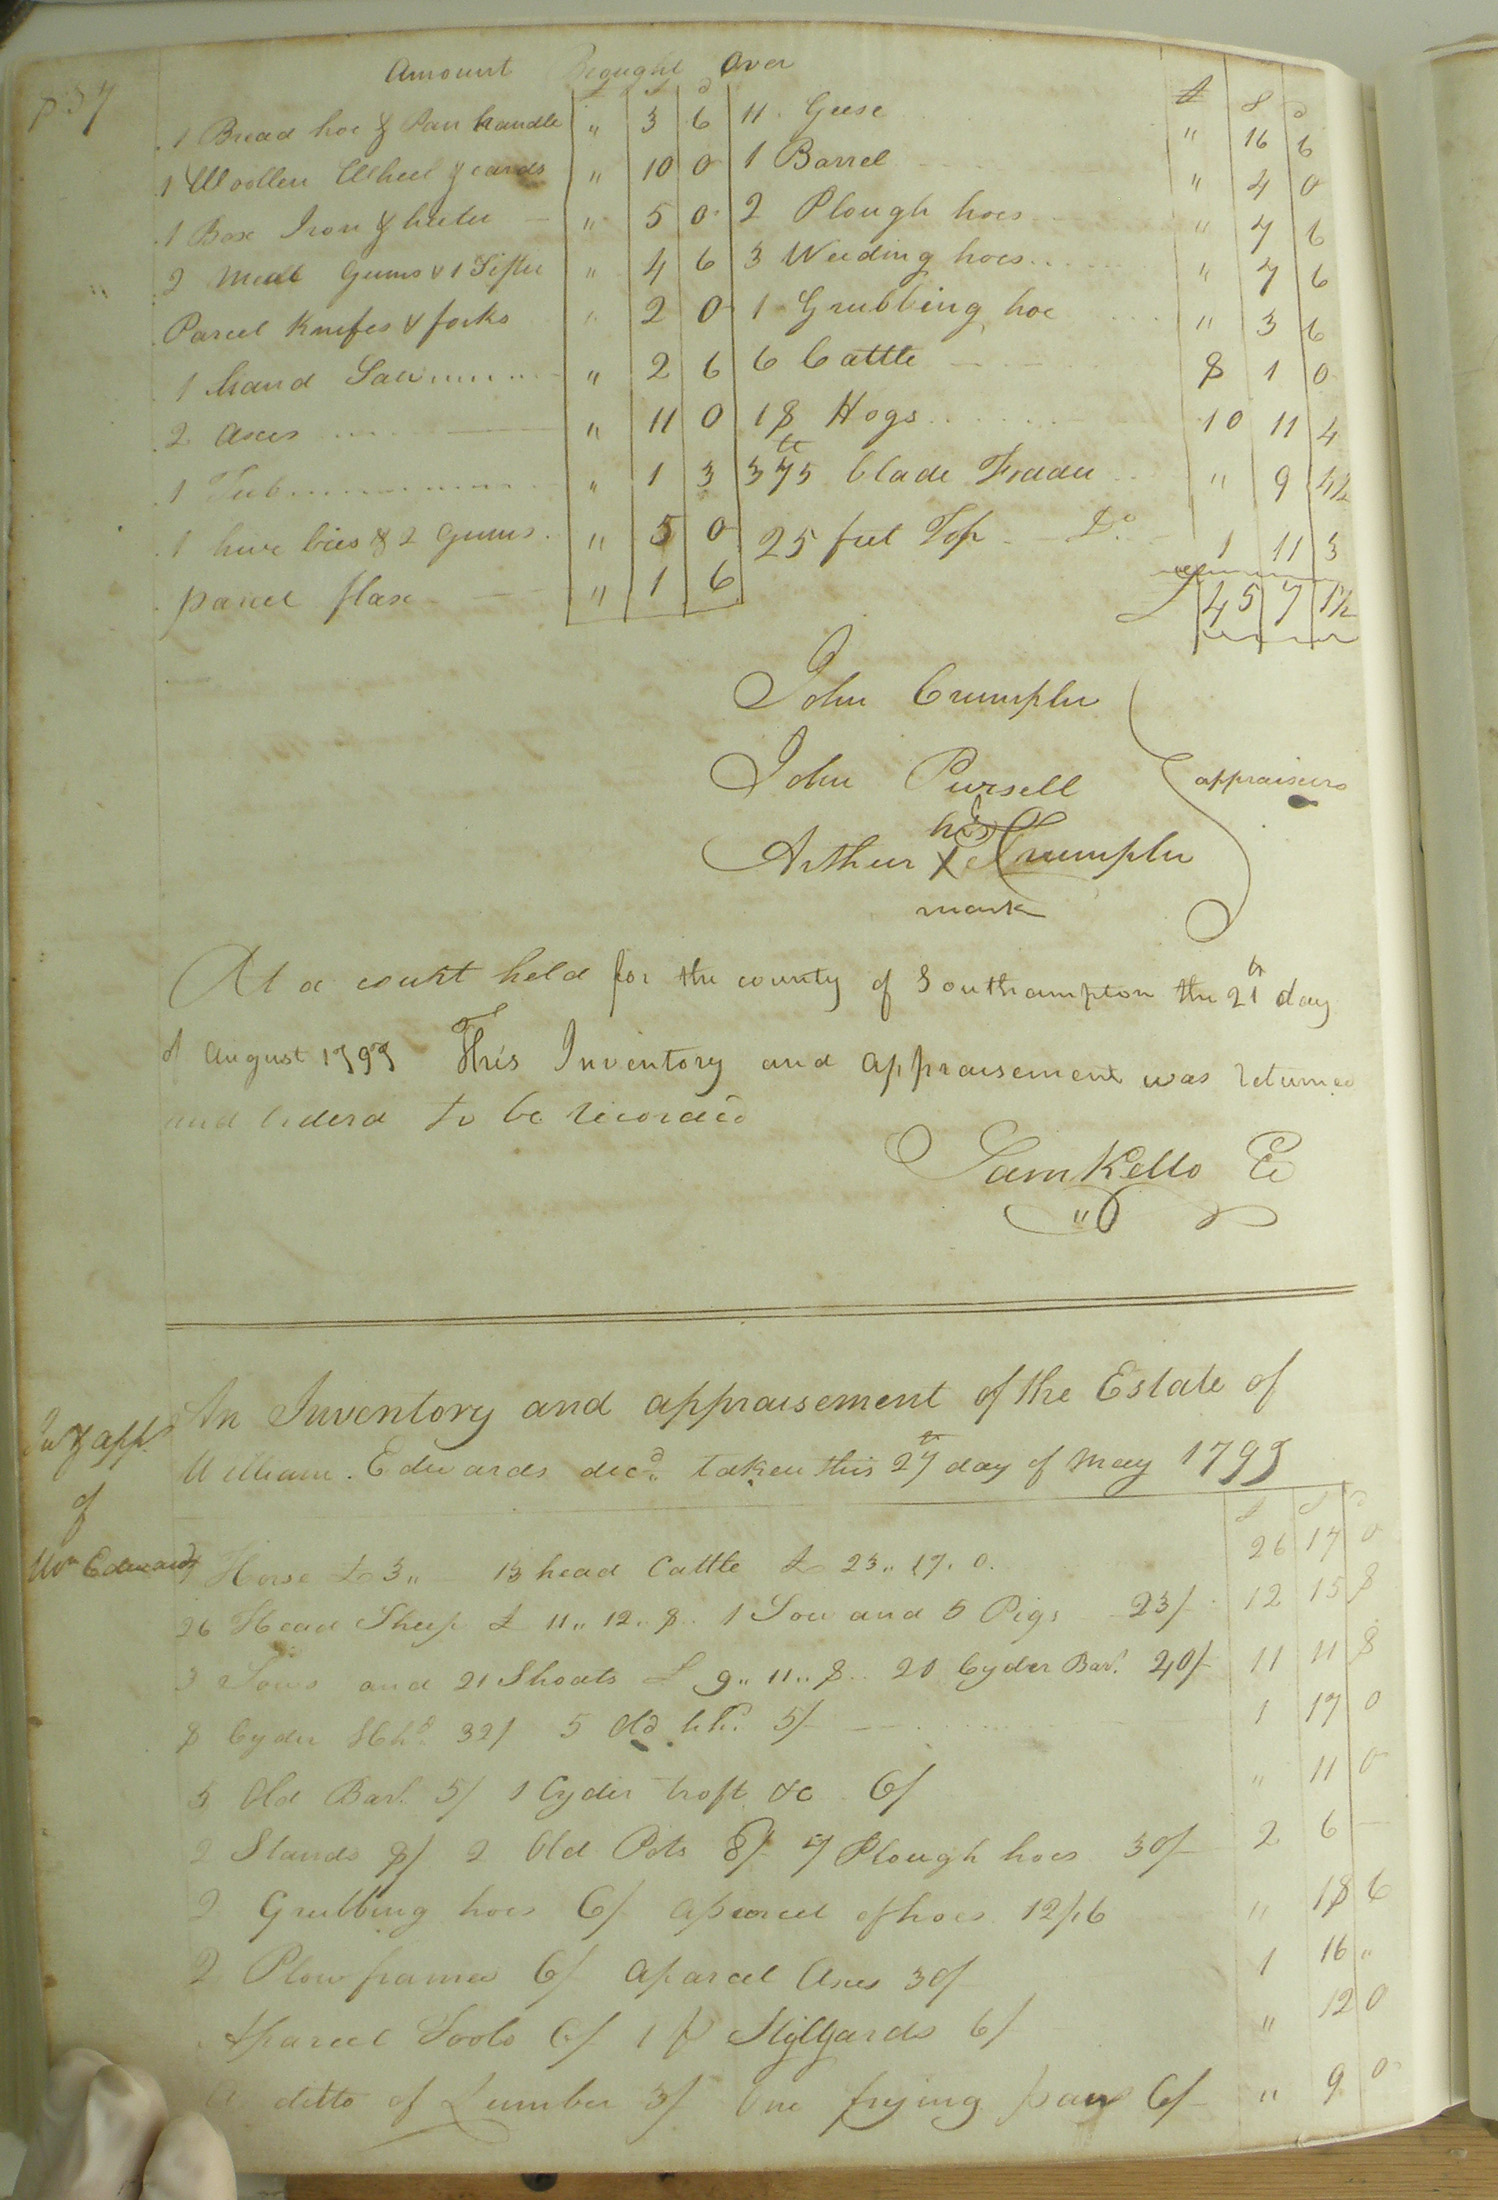 p 37
Amount Brought Over
£ s d £ s d
1 Bread hoe & Pan handle " 3 6 11 Geese " 16 6
1 Woollen Wheel & cards " 10 0 1 Barrel " 4 0
1 Box Iron & heeter " 5 0 2 Plough hoes " 7 6
2 Meal Gums & 1 Sifter " 4 6 3 Weeding hoes " 7 6
Parcel Knifes & forks " 2 0 1 Grubbing hoe " 3 6
1 hand Saw " 2 6 6 Cattle 8 1 0
2 axes " 11 0 18 Hogs 10 11 4
1 Tub " 1 3 375 lb blade Fodder " 9 4½
1 hive bees & 2 Gums " 5 0 25 feet Top Do 1 11 3
parcel flax " 1 6 £ 45 7 1½
John Crumpler
John Pursell appraisers
his
Arthur X Crumpler
mark
At a court held for the county of Southampton the 21th day
of August 1797 This Inventory and appraisement was returned
and ordered to be recorded
Sam Kello Cc
Inv & app.
of
Wm Edwards
An Inventory and appraisement of the Estate of
William Edwards decd taken this 27th day of May 1797
£ s d
1 Horse £3 " 13 head Cattle £ 23 " 17 . 0 26 17 0
26 Head Sheep £ 11 " 12 " 8 1 Sow and 5 Pigs 23/ 12 15 8
3 Sows and 21 Shoats £ 9 " 11 " 8 20 Cyder Barl. 40/ 11 11 8
8 Cyder Hhds 32/ 5 Old hhd. 5/ 1 17 0
5 Old Barl. 5/ 1 Cyder troft &c 6/ " 11 0
2 Stands 8/ 2 Old Pots 8/ 7 Plough hoes 30/ 2 6 —
2 Grubbing hoes 6/ a parcel of hoes 12/6 " 18 6
2 Plow frames 6/ a parcel Axes 30/ 1 16 "
A parcel Tools 6/ 1 p Stillyards 6/ " 12 0
A ditto of Lumber 3/ One frying pan 6/ " 9 0